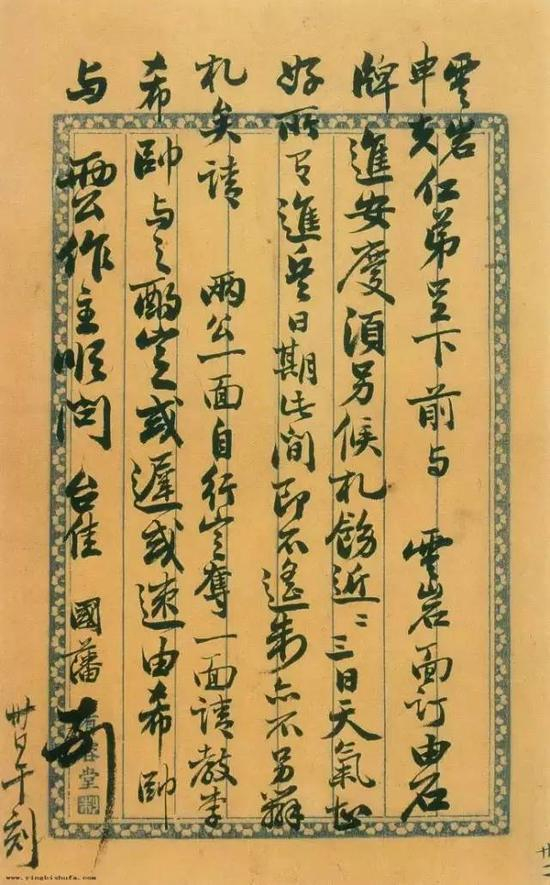 雲岩
申夫仁弟足下前与 雲岩面订由石
牌進安慶須另候札飭近二三日天氣甚
好所有進兵日期此間即不遙制亦不另辦
札矣請 兩公一面自行定奪一面請教李
希帥与之酌定或遲或速由希帥
与 兩公作主順問 台佳 國藩
卅日午刻
容堂
www.yingbishufa.com